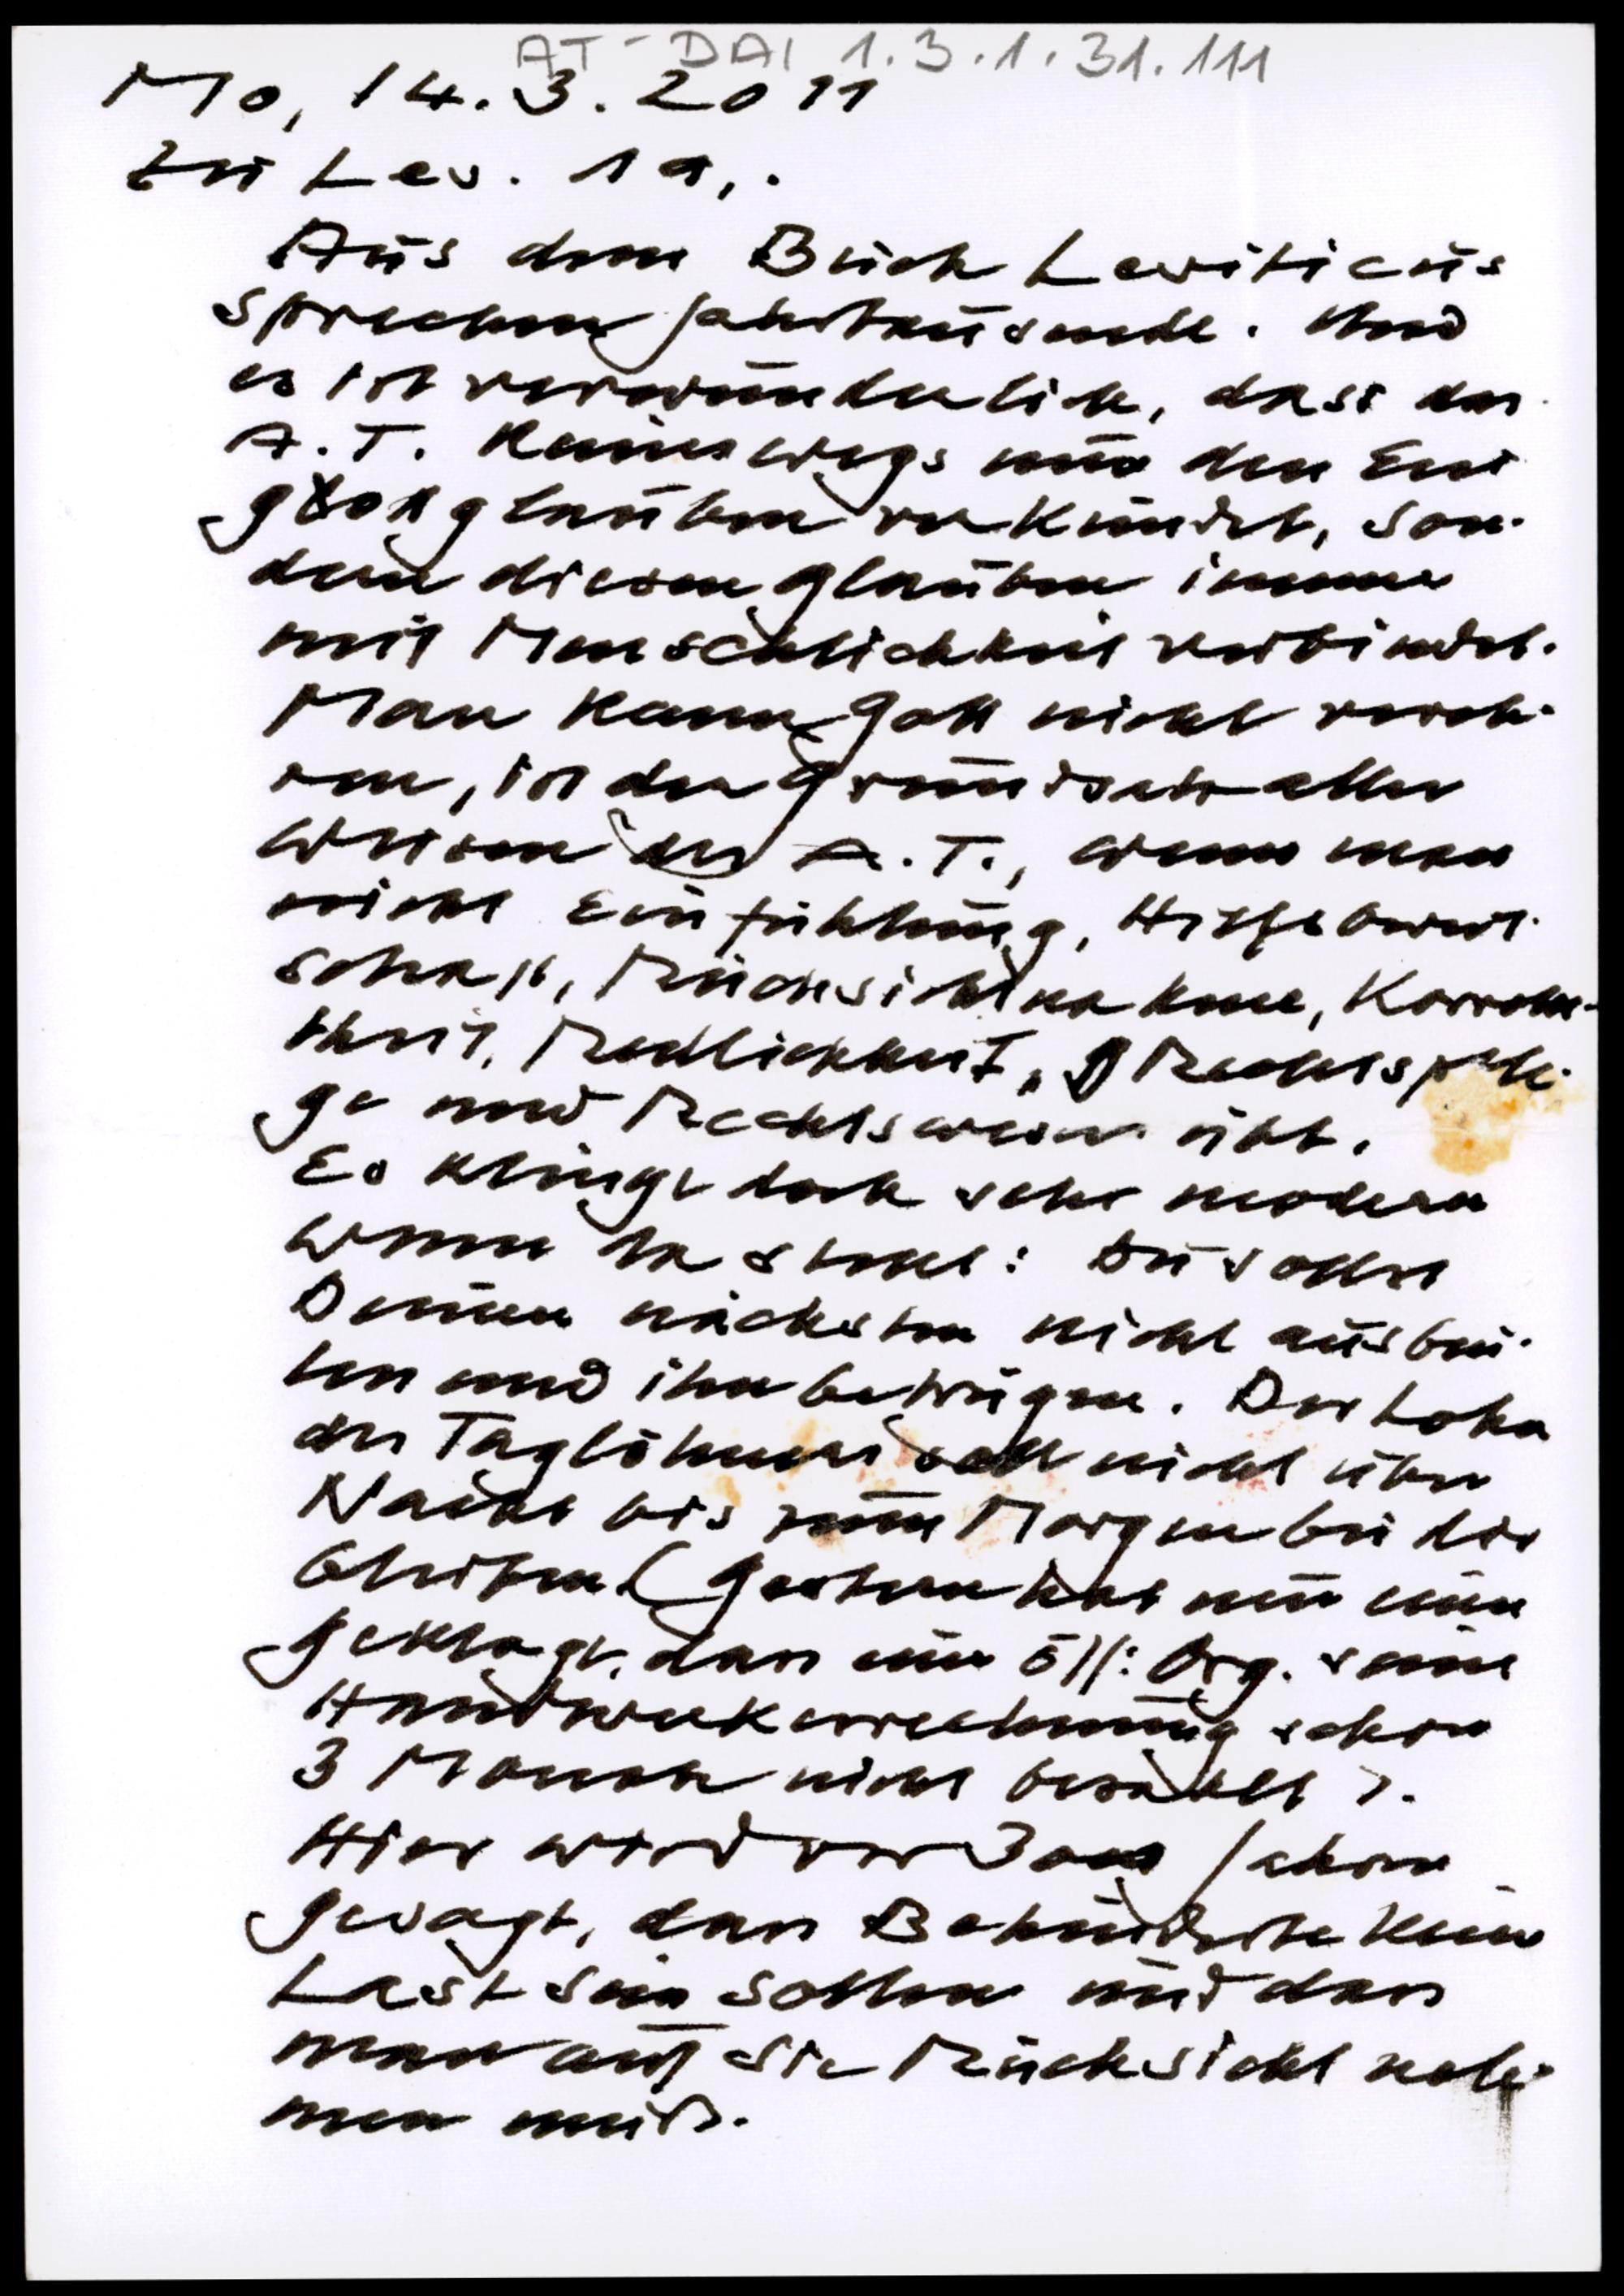 AT-DAI 1.3.1.31.111
Mo, 14.3.2011
Zu Lev. 19,.
Aus dem Buch Leviticus
sprechen Jahrtausende. Und
es ist verwunderlich, dass das
A.T. keineswegs nur den Ein
gottglauben verkündet, son-
dern diesen Glauben immer
mit Menschlichkeit verbindet.
Man kann Gott nicht vereh-
ren, ist der Grundsatz aller
Weisen des A.T., wenn man
nicht Einfühlung, Hilfsbereit-
schaft, Rücksichtnahme, Korrekt-
heit, Redlichkeit, Rechtspfle-
ge und Rechtswesen übt.
Es klingt doch sehr modern
wenn da steht: Du sollst
Deinen nächsten nicht ausbeu-
ten und ihn betrügen. Der Lohn
des Taglöhners soll nicht über
Nacht bis zum Morgen bei dir
bleiben (Gestern hat mir einer
geklagt, dass eine öff: Org. seine
Handwerkerrechnung schon
3 Monate nicht bezahlt).
Hier wird vor 3000 Jahren
gesagt, dass Behinderte keine
Last sein sollen und dass
man auf sie Rücksicht neh-
men muß.